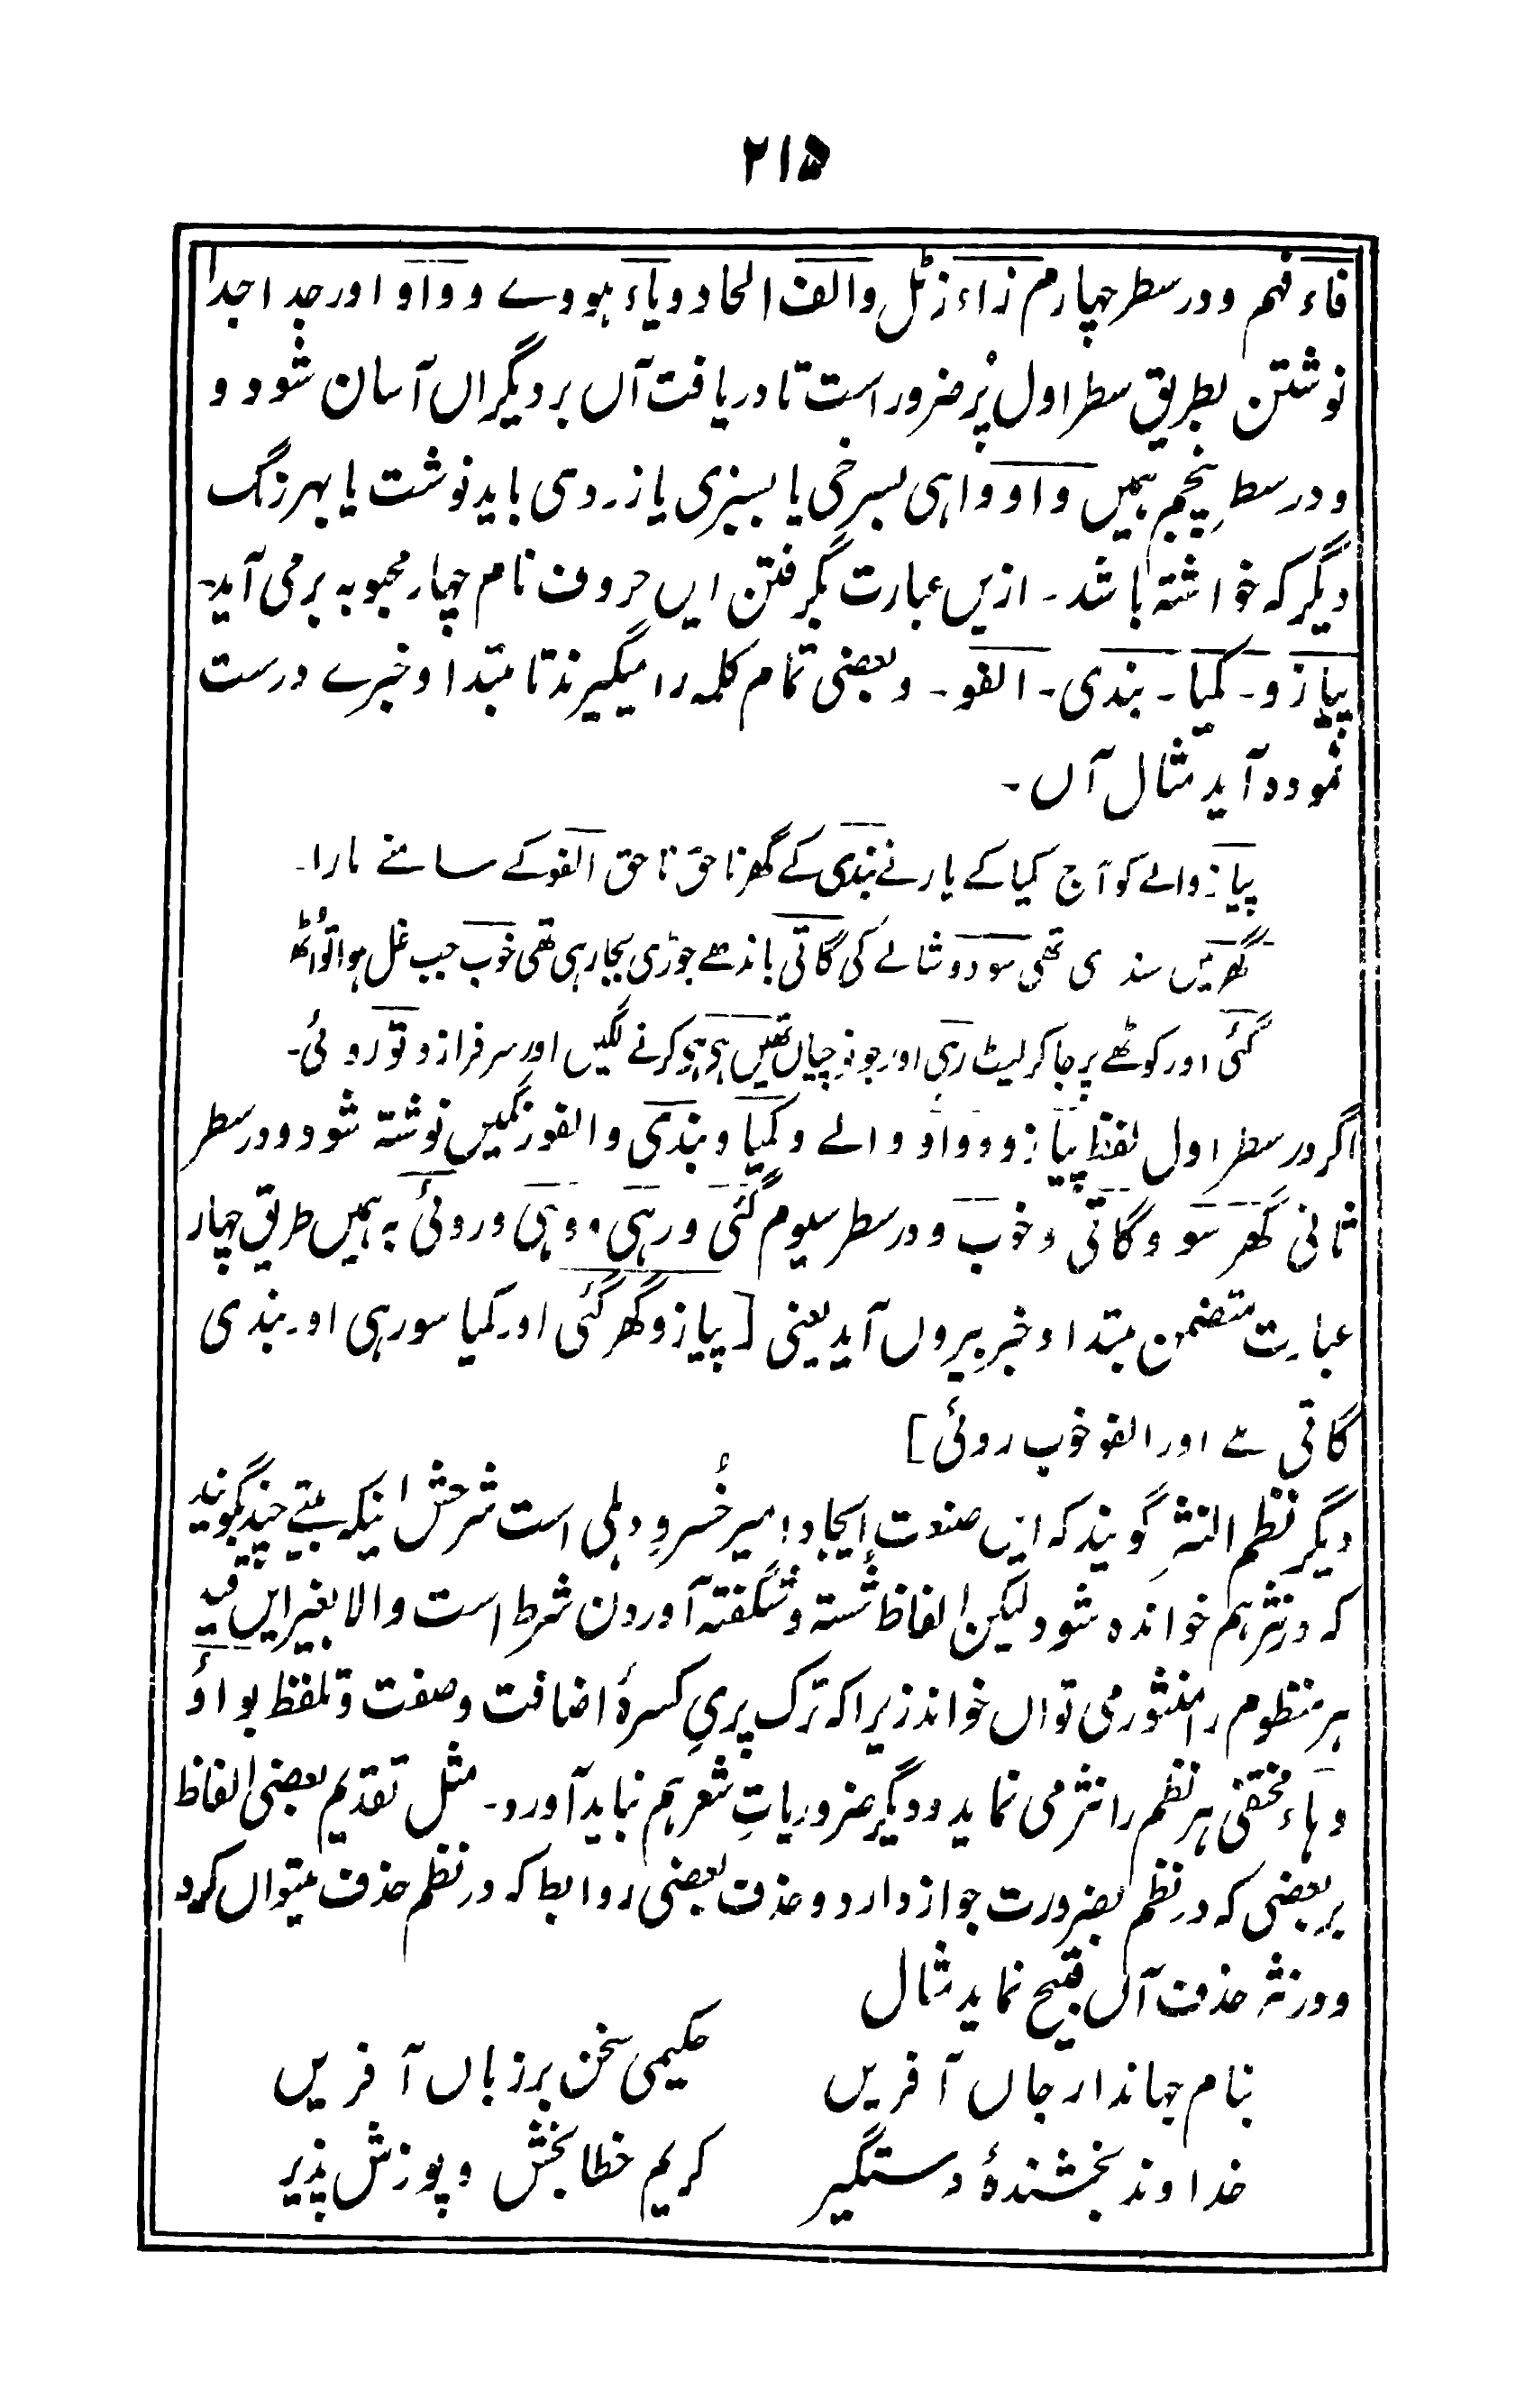 ۲۱۵
فاء فہم و در سطر چہارم زاء زٹل و الف الحاد و یاء ہووے و واو اور جدا جدا
نوشتن بطریق سطر اول پُر ضرور است تا دریافت آں بر دیگراں آسان شود و
و در سطرِ پنجم ہمیں واو واہی بسرخی یا بسبزی یا زردی باید نوشت یا بہر رنگ
دیگر کہ خواشتہ باشد۔ ازیں عبارت بگرفتن ایں حروف نام چہار محبوبہ برمی آید۔
پیازو۔ کمیا۔ بندی۔ الفو۔ و بعضی تمام کلمہ را میگیرند تا مبتدا و خبرے درست
نمودہ آید مثال آں۔
پیاز والے کو آج کمیا کے یار نے بندی کے گھر ناحق ناحق الفو کے سامنے مارا۔
گھر میں سندی تھی سو دوشالے کی گاتی باندھے جوڑی بجا رہی تھی خوب جب غل ہوا تو اُٹھ
گئی اور کوٹھے پر جا کر لیٹ رہی اور جو نوچیاں تھیں ہی ہی کرنے لگیں اور سرفرازو تو روئی۔
اگر در سطر اول لفظ پیاز و واو والے و کمیا و بندی و الفو رنگیں نوشتہ شود و در سطر
ثانی گھر سو و گاتی و خوب و در سطر سیوم گئی و رہی و وہی و روئی بہ ہمیں طریق چہار
عبارت متضمن مبتدا و خبر بیروں آید یعنی [پیازو گھر گئی اور کمیا سو رہی اور بندی
گاتی ہے اور الفو خوب روئی]
دیگر نظم النثرِ گویند کہ ایں صنعت ایجاد امیر خُسروِ دہلی است شرحش اینکہ بیتے چند بگویند
کہ در نثر ہم خواندہ شود لیکن الفاظ شستہ و شگفتہ آوردن شرط است والا بغیر ایں قید
ہر منظوم را منثور می تواں خواند زیرا کہ ترک پریِ کسرۂ اضافت و صفت و تلفظ بواؤ
و ہاء مختفی ہر نظم را نثر می نماید و دیگر ضروریاتِ شعر ہم نباید آورد۔ مثل تقدیم بعضی الفاظ
بر بعضی کہ در نظم بضرورت جواز دارد و حذف بعضی روابط کہ در نظم حذف میتواں کرد
و در نثر حذف آں قبیح نماید مثال
بنام جہاندار جاں آفریں حکیمی سخن بر زباں آفریں
خداوند بخشندۂ دستگیر کریم خطا بخش و پوزش پذیر